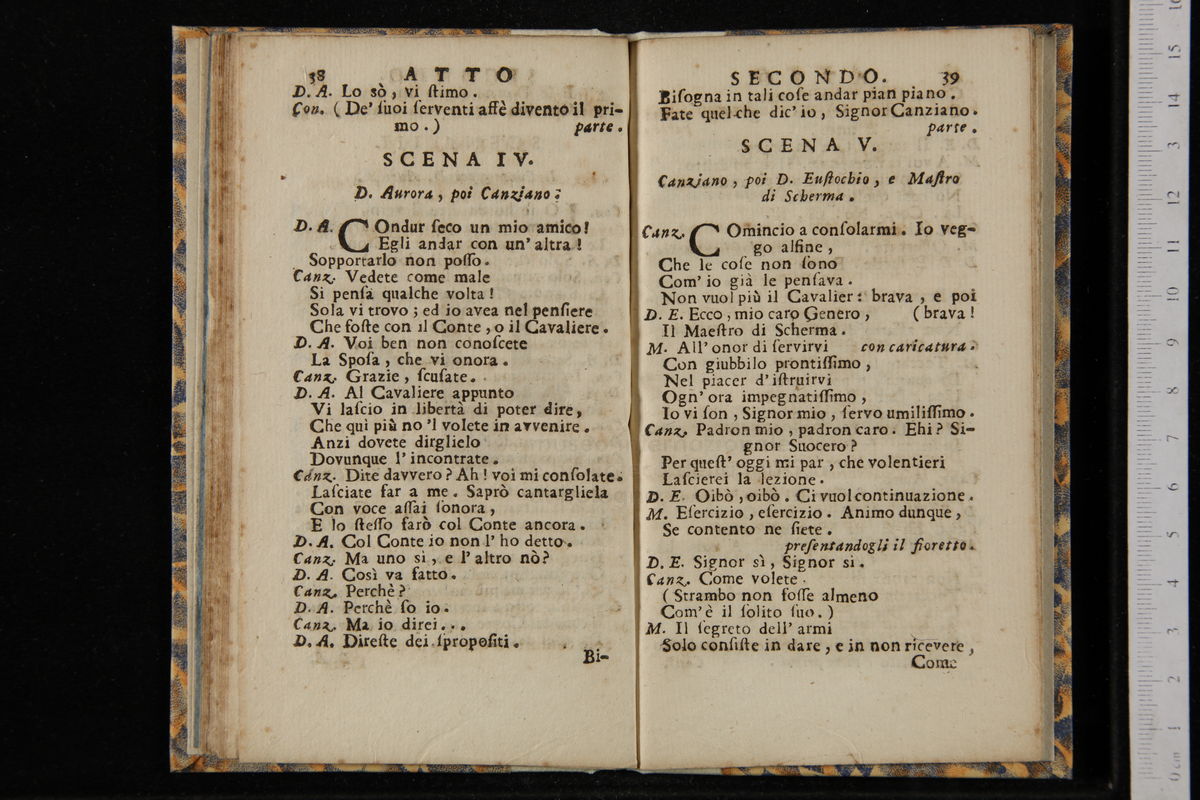 38 ATTO
D. A. Lo sò, vi ſtimo.
Con. (De' ſuoi ſerventi affè divento il pri-
mo.) parte.
SCENA IV.
D. Aurora, poi Canziano:
D. A. COndur ſeco un mio amico!
Egli andar con un' altra!
Sopportarlo non poſſo.
Canz. Vedete come male
Si penſa qualche volta!
Sola vi trovo; ed io avea nel penſiere
Che foſte con il Conte, o il Cavaliere.
D. A. Voi ben non conoſcete
La Spoſa, che vi onora.
Canz. Grazie, ſcuſate.
D. A. Al Cavaliere appunto
Vi laſcio in libertà di poter dire,
Che quì più no 'l volete in avvenire.
Anzi dovete dirglielo
Dovunque l' incontrate.
Canz. Dite davvero? Ah! voi mi conſolate.
Laſciate far a me. Saprò cantargliela
Con voce aſſai ſonora,
E lo ſteſſo farò col Conte ancora.
D. A. Col Conte io non l' ho detto.
Canz. Ma uno si, e l' altro nò?
D. A. Così va fatto.
Canz. Perchè?
D. A. Perchè ſo io.
Canz. Ma io direi...
D. A. Direſte dei ſpropoſiti.
Bi-
SECONDO. 39
Biſogna in tali coſe andar pian piano.
Fate quel che dic' io, Signor Canziano.
parte.
SCENA V.
Canziano, poi D. Euſtochio, e Maſtro
di Scherma.
Canz. COmincio a conſolarmi. Io veg-
go alfine,
Che le coſe non ſono
Com' io già le penſava.
Non vuol più il Cavalier: brava, e poi
D. E. Ecco, mio caro Genero, (brava!
Il Maeſtro di Scherma.
M. All' onor di ſervirvi con caricatura.
Con giubbilo prontiſſimo,
Nel piacer d' iſtruirvi
Ogn' ora impegnatiſſimo,
Io vi ſon, Signor mio, ſervo umiliſſimo.
Canz. Padron mio, padron caro. Ehi? Si-
gnor Suocero?
Per queſt' oggi mi par, che volentieri
Laſcierei la lezione.
D. E. Oibò, oibò. Ci vuol continuazione.
M. Eſercizio, eſercizio. Animo dunque,
Se contento ne ſiete.
preſentandogli il fioretto.
D. E. Signor sì, Signor si.
Canz. Come volete.
(Strambo non foſſe almeno
Com' è il ſolito ſuo.)
M. Il ſegreto dell' armi
Solo conſiſte in dare, e in non ricevere,
Come